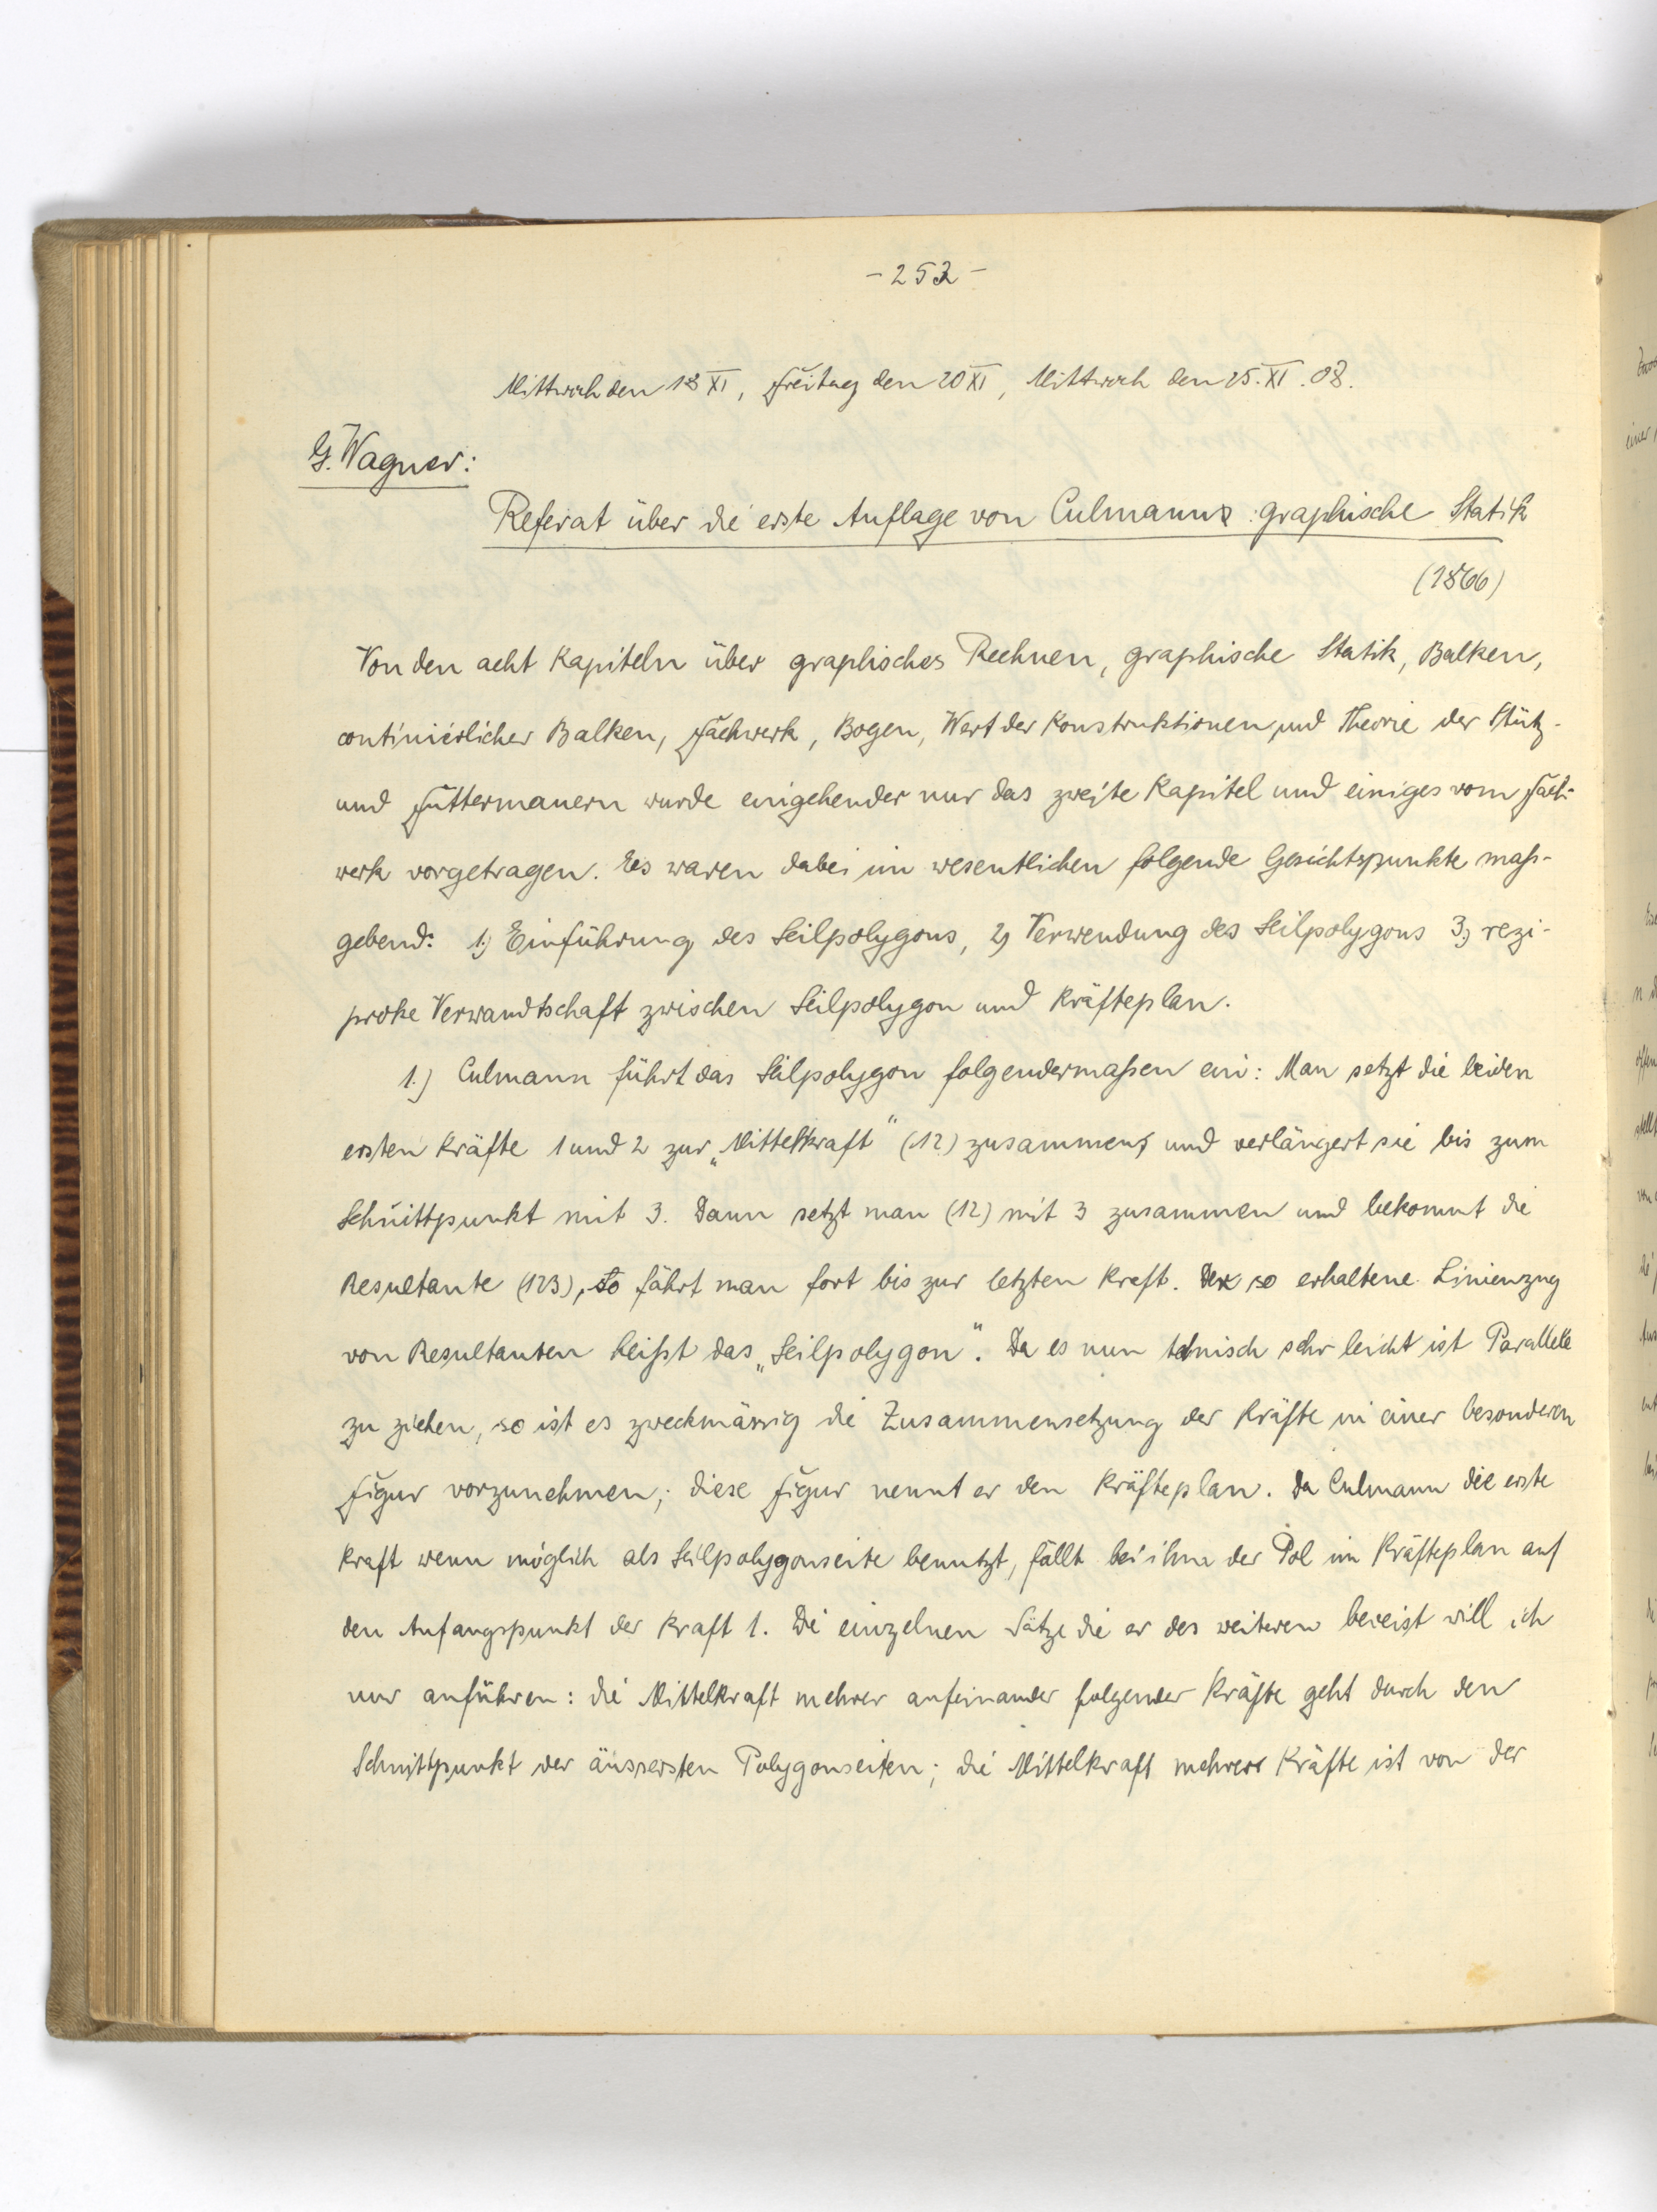 - 252 -
Mittwoch den 18 XI, Freitag den 20 XI, Mittwoch den 25. XI. 08.
G. Wagner:
Referat über die erste Auflage von Culmanns graphische Statik
(1866)
Von den acht Kapiteln über graphisches Rechnen, graphische Statik, Balken,
continuierlicher Balken, Fachwerk, Bogen, Wert der Konstruktionen und Theorie der Stütz-
und Futtermauern wurde eingehender nur das zweite Kapitel und einiges vom Fach-
werk vorgetragen. Es waren dabei im wesentlichen folgende Gesichtspunkte maß-
gebend: 1.) Einführung des Seilpolygons, 2) Verwendung des Seilpolygons 3.) rezi-
proke Verwandtschaft zwischen Seilpolygon und Kräfteplan.
1.) Culmann führt das Seilpolygon folgendermaßen ein: Man setzt die beiden
ersten Kräfte 1 und 2 zur „Mittelkraft“ (12) zusammen, und verlängert sie bis zum
Schnittpunkt mit 3. Dann setzt man (12) mit 3 zusammen und bekommt die
Resultante (123), so fährt man fort bis zur letzten Kraft. Der so erhaltene Linienzug
von Resultanten heißt das „Seilpolygon“. Da es nun technisch sehr leicht ist Parallele
zu ziehen, so ist es zweckmässig die Zusammensetzung der Kräfte in einer besonderen
Figur vorzunehmen; diese Figur nennt er den Kräfteplan. Da Culmann die erste
Kraft wenn möglich als Seilpolygonseite benutzt, fällt bei ihm der Pol im Kräfteplan auf
den Anfangspunkt der Kraft 1. Die einzelnen Sätze die er des weiteren beweist will ich
nur anführen: die Mittelkraft mehrer aufeinander folgender Kräfte geht durch den
Schnittpunkt der äussersten Polygonseiten; die Mittelkraft mehrer Kräfte ist von der